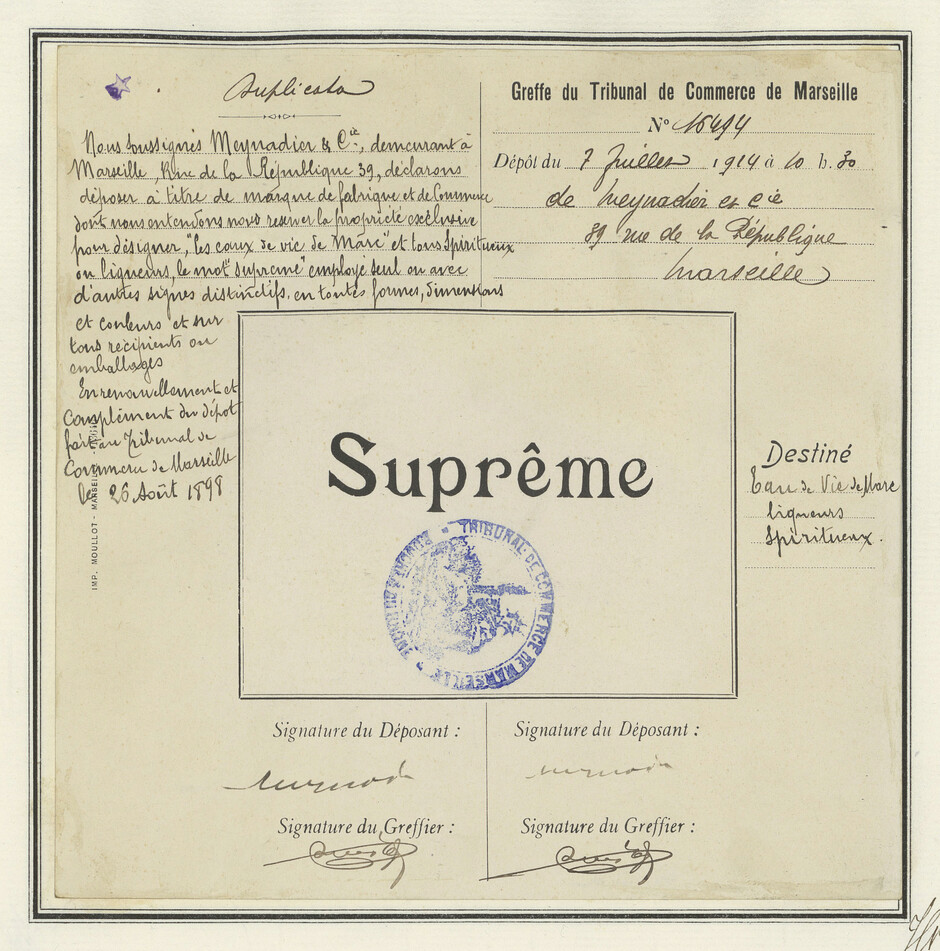 Duplicata
Nous soussignés Meynadier & Cie, demeurant à
Marseille, Rue de la République 39, déclarons
déposer à titre de marque de fabrique et de Commerce
dont nous entendons nous réserver la propriété exclusive
pour désigner, "les eaux de vie de Marc" et tous Spiritueux
ou liqueurs, le mot "Suprême" employé seul ou avec
d'autres signes distinctifs, en toutes formes, dimensions
et couleurs et sur
tous récipients ou
emballages
En renouvellement et
Complément du dépôt
fait au Tribunal de
Commerce de Marseille
le 26 Août 1898
IMP. MOULLOT - MARSEILLE
Greffe du Tribunal de Commerce de Marseille
N° 15494
Dépôt du 7 Juillet 1914 à 10 h. 30
de Meynadier et Cie
39 rue de la République
Marseille
Suprême
TRIBUNAL DE COMMERCE DE MARSEILLE
Destiné
Eau de Vie de Marc
liqueurs
Spiritueux.
Signature du Déposant :
Signature du Déposant :
Signature du Greffier :
Signature du Greffier :